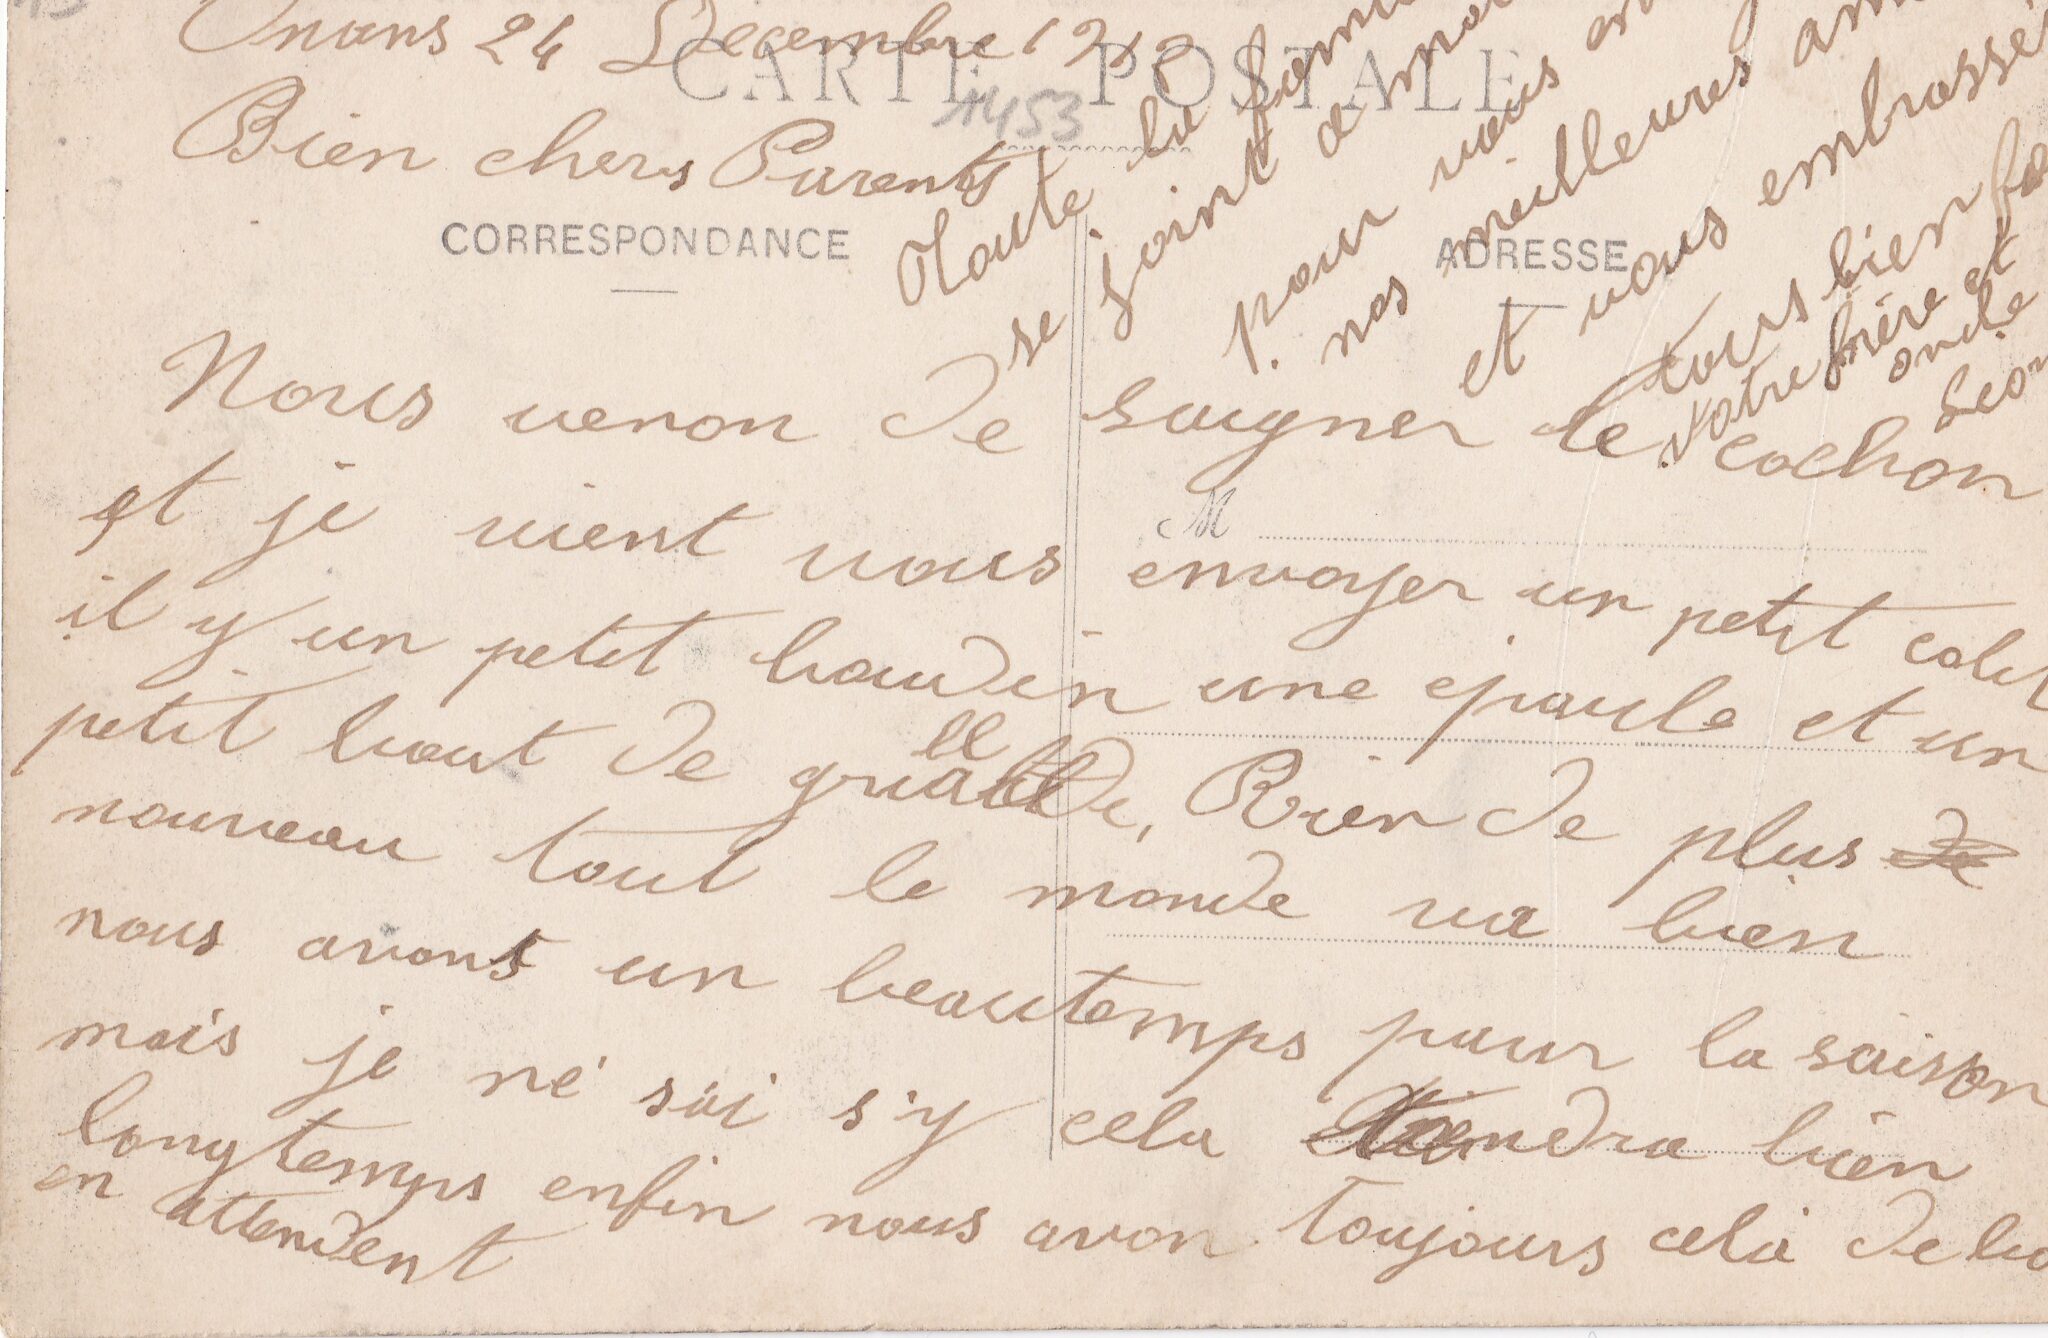 Onans 24 Decembre 1912
CARTE POSTALE
1453
Bien chers Parents
CORRESPONDANCE
ADRESSE
Nous venon de soigner le cochon
et je vient vous envoyer un petit colit
M
il y un petit boudin une épaule et un
petit bout de grillade, Rien de plus de
nouveau tout le monde va bien
nous avons un beau temps pour la saison
mais je ne sai s'y cela tiendra bien
longtemps enfin nous avon toujours cela de bo
en attendent
Toute la
se joint a moi
pour vous
nos meilleures
et vous embrasse
tous bien fo
Votre frère et
oncle
Leon